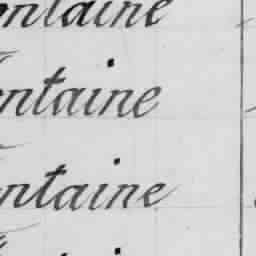 ontaine
ntaine
ntaine